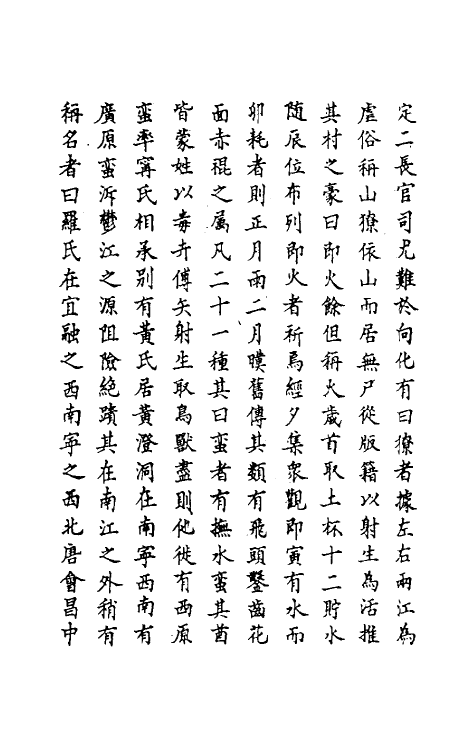 定二長官司尤難於向化有曰獠者據左右兩江為
虐俗稱山獠依山而居無戸從版籍以射生為活推
其村之豪曰即火餘但稱火歲首取土杯十二貯水
随辰位布列即火者祈焉經夕集衆觀即寅有水而
卯耗者則正月雨二月暵舊傳其類有飛頭鑿齒花
面赤裩之属凡二十一種其曰蛮者有撫水蛮其酋
皆蒙姓以毒卉傅矢射生取鳥獸盡則他徙有西原
蛮率寗氏相承别有黄氏居黄澄洞在南寜西南有
廣原蛮泝鬱江之源阻險絶蹟其在南江之外稍有
稱名者曰羅氏在宜融之西南寜之西北唐會昌中